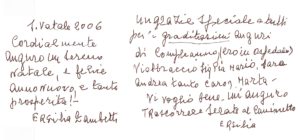 S. Natale 2006
Cordialmente
Auguro un sereno
Natale, e felice
Anno nuovo, e tanta
prosperità!-
Ersilia Zambetti
Un grazie speciale a tutti
per i graditissimi auguri
di Compleanno (ero in ospedale)
Vi abbraccio Mario, Sara
Andrea tanto caro, Marta-
Vi voglio bene, mi auguro
Trascorrere serate al Caminetto
Ersilia